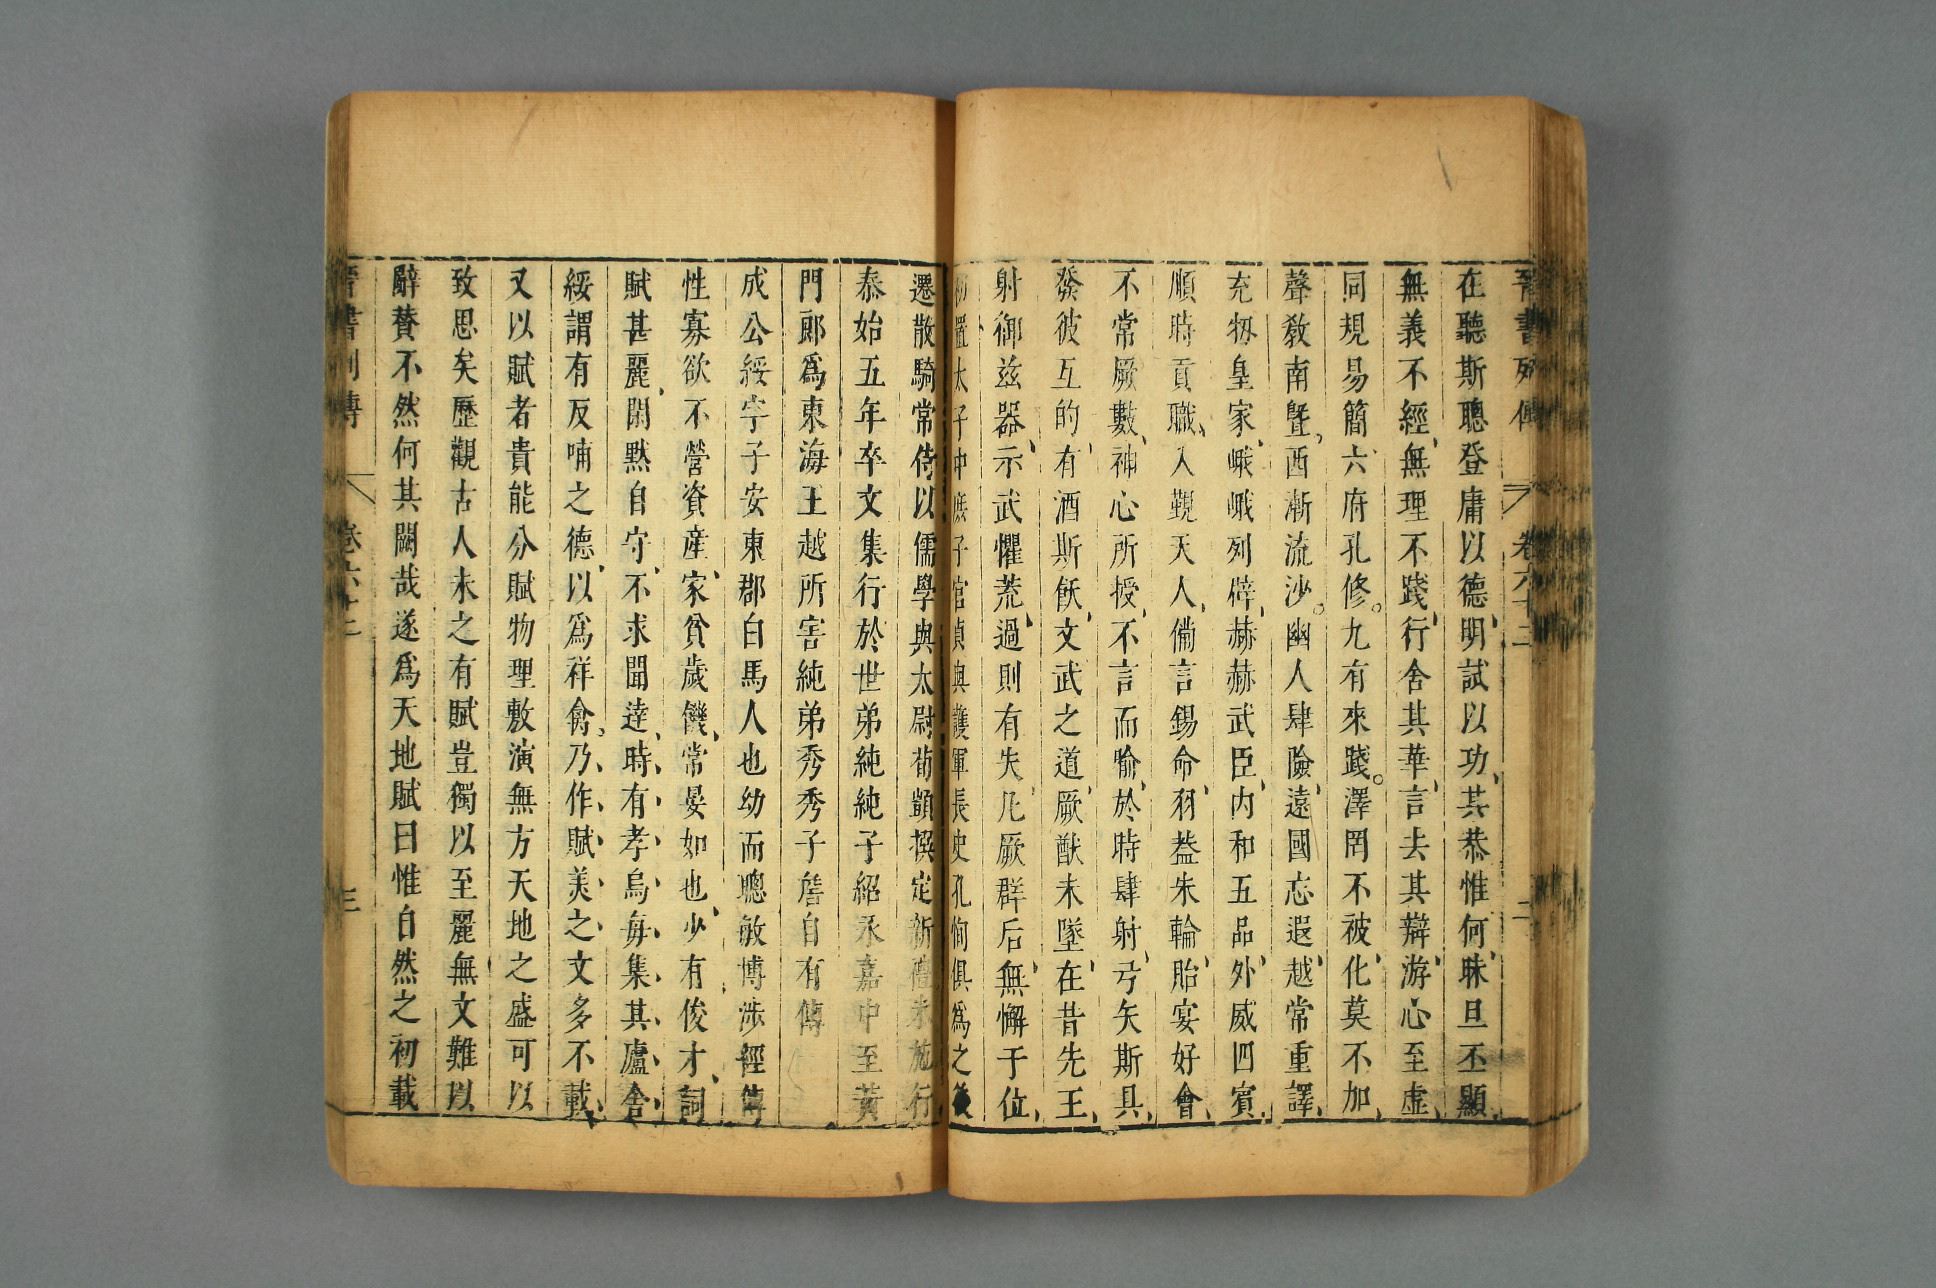 晉書列傳 卷六十二 二
在聽斯聰登庸以德明試以功其恭惟何昧旦丕顯
無義不經無理不踐行舍其華言去其辯游心至虛
同規易簡六府孔修。九有來踐。澤罔不被化莫不加
聲敎南曁西漸流沙。幽人肆險遠國忘遐越常重譯
充牣皇家峨峨列辟赫赫武臣内和五品外威四賓
順時貢職入覲天人備言錫命羽葢朱輪貽宴好會
不常厥數神心所授不言而喩於時肆射弓矢斯具
發彼互的有酒斯飫文武之道厥猷未墜在昔先王
射御兹器示武懼荒過則有失凡厥群后無懈于位
初置太子中庶子官貞與護軍長史孔恂俱爲之後
遷散騎常侍以儒學與太尉荀顗撰定新禮未施行
泰始五年卒文集行於世弟純純子紹永嘉中至黃
門郎爲東海王越所害純弟秀秀子詹自有傳
成公綏字子安東郡白馬人也幼而聰敏博涉經傳
性寡欲不營資産家貧歲饑常晏如也少有俊才詞
賦甚麗閑默自守不求聞達時有孝烏每集其廬舍
綏謂有反哺之德以爲祥禽。乃作賦美之文多不載
又以賦者貴能分賦物理敷演無方天地之盛可以
致思矣歷觀古人未之有賦豈獨以至麗無文難以
辭賛不然何其闕哉遂爲天地賦曰惟自然之初載
晉書列傳 卷六十二 三